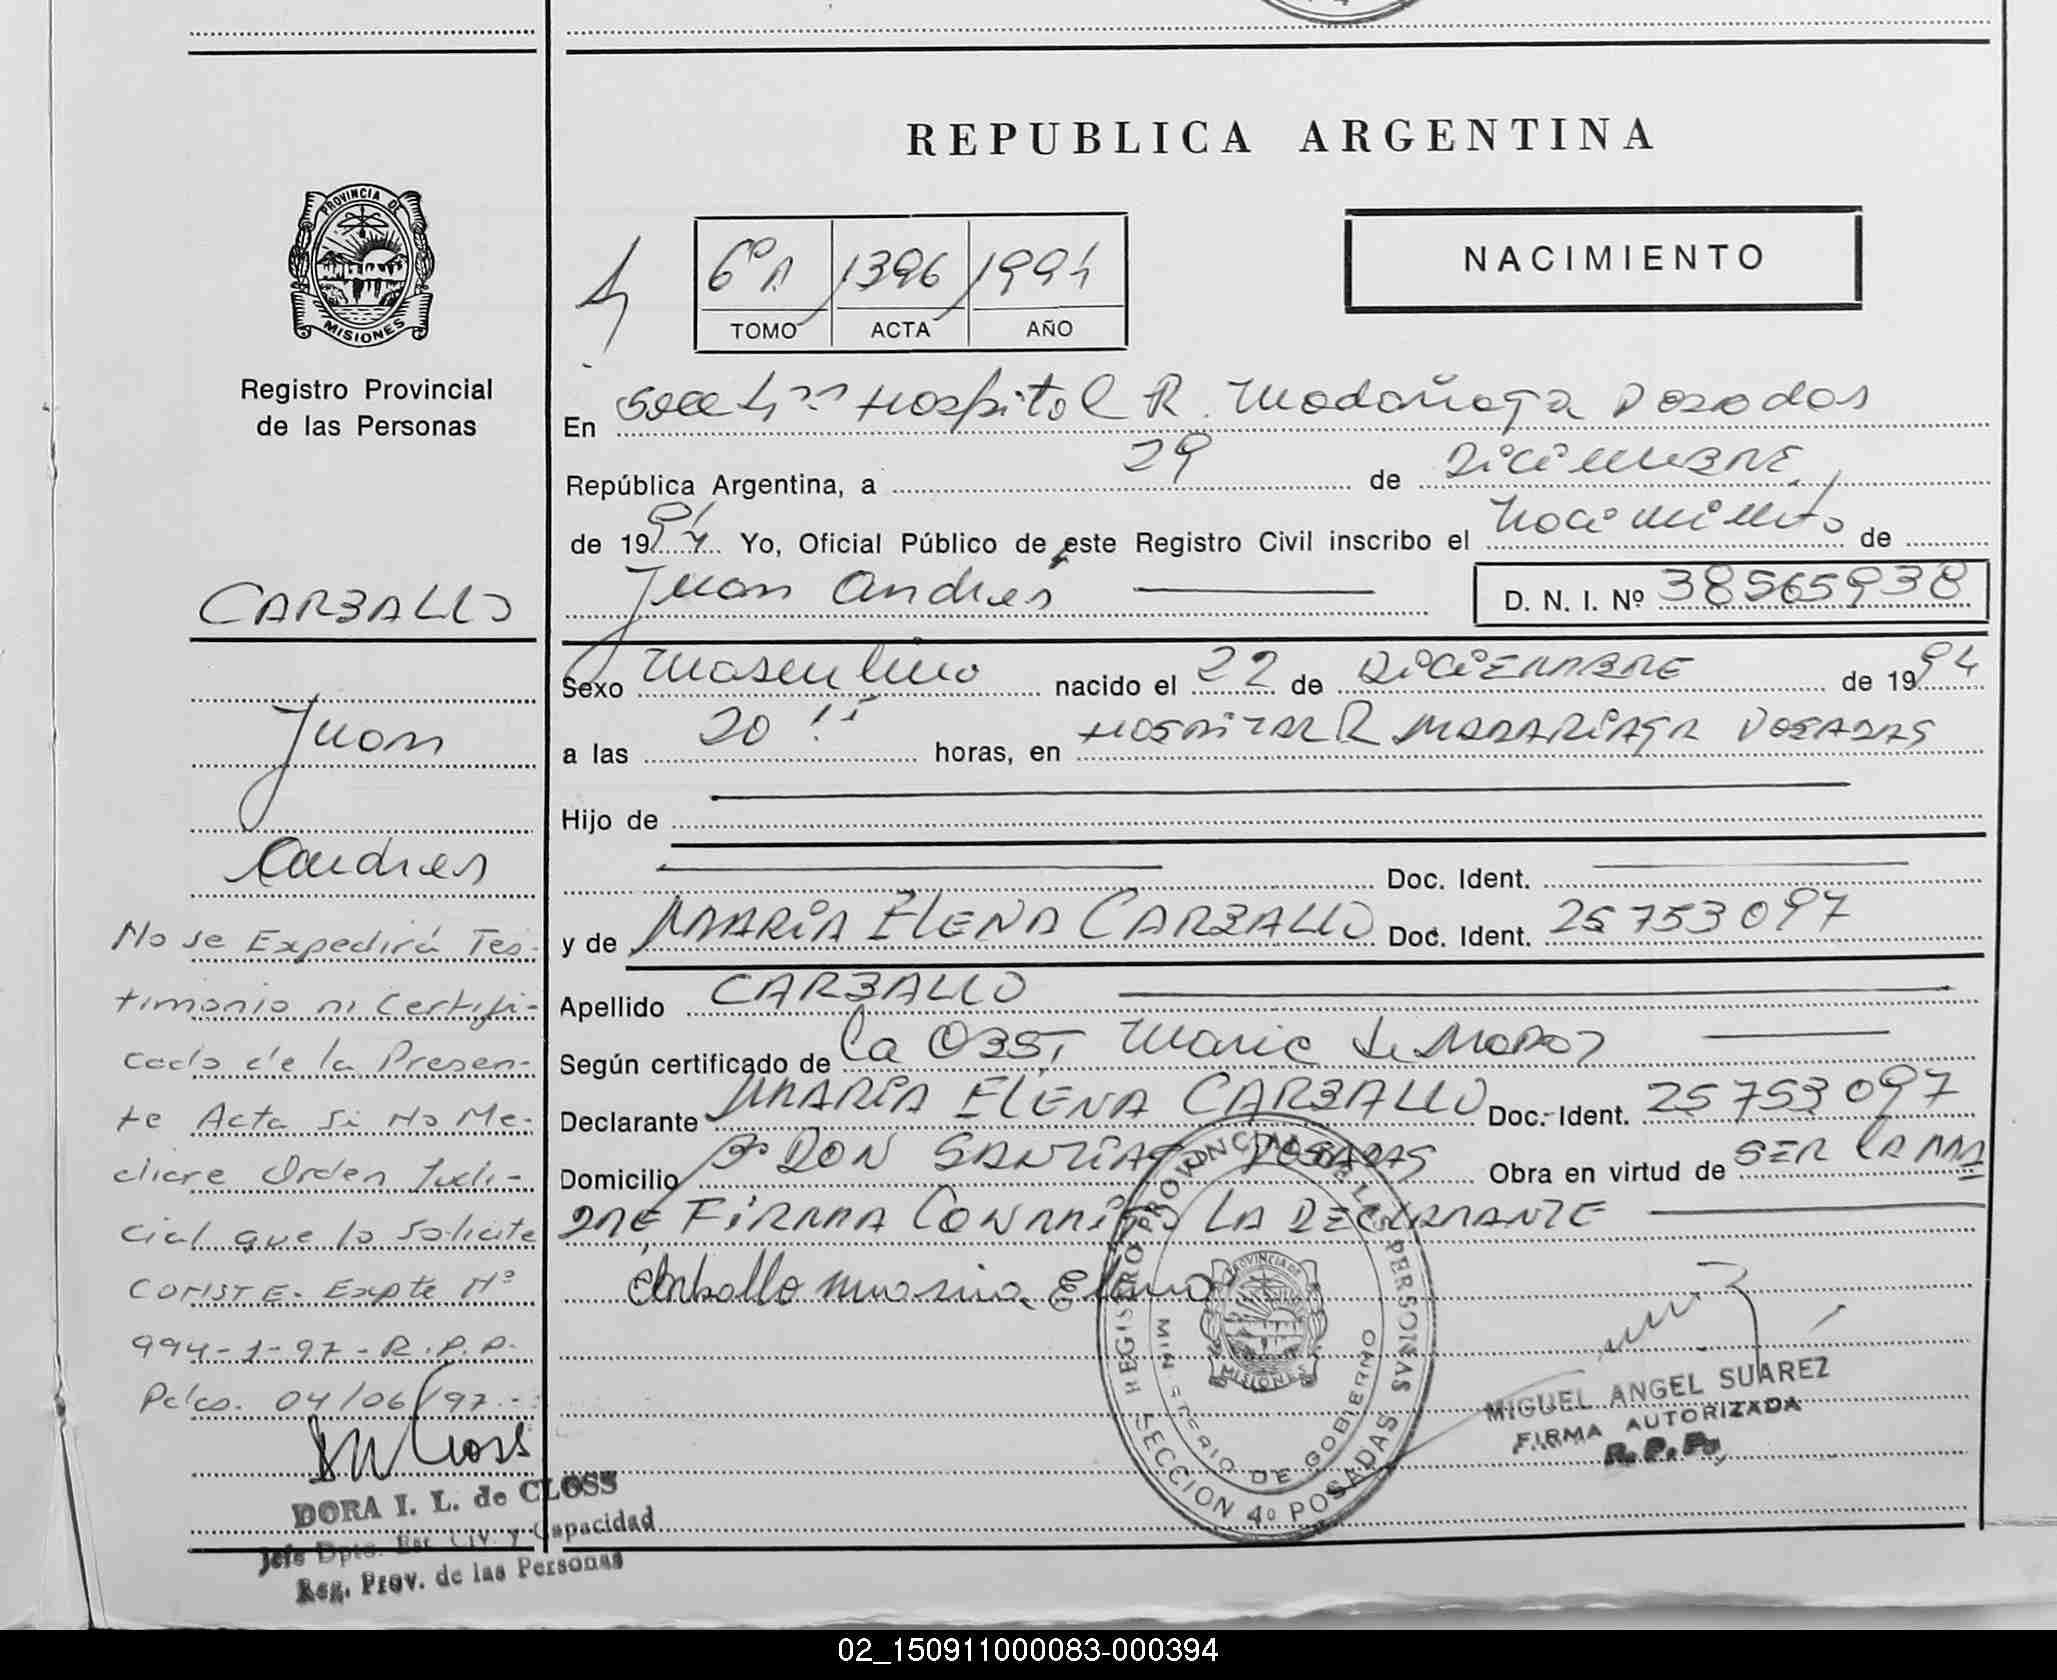 REPUBLICA ARGENTINA
PROVINCIA DE
MISIONES
Registro Provincial
de las Personas
6º A 1396 1994
TOMO ACTA AÑO
NACIMIENTO
En Secc 4ta Hospital R. Madariaga Posadas
República Argentina, a 29 de Diciembre
de 1994 Yo, Oficial Público de este Registro Civil inscribo el Nacimiento de
Juan Andrés D. N. I. Nº 38565938
Sexo Masculino nacido el 22 de DiCiEMBRE de 1994
a las 20 horas, en HOSPITAL R MADARIAGA POSADAS
Hijo de
Doc. Ident.
y de MARiA ELENA CARBALLO Doc. Ident. 25753097
Apellido CARBALLO
Según certificado de la OBST
Declarante MARiA ELENA CARBALLO Doc. Ident. 25753097
Domicilio Bº DON SANTIAGO POSADAS Obra en virtud de SER LA MA
DRE FiRMA CONMIGO LA DECLARANTE
Carballo Maria Elena
REGISTRO PROVINCIAL DE LAS PERSONAS
MINISTERIO DE GOBIERNO
PROVINCIA DE
MISIONES
SECCION 4º POSADAS
MIGUEL ANGEL SUAREZ
FIRMA AUTORIZADA
R. P. P.
CARBALLO
Juan
Andres
No se Expedirá Tes-
timonio ni Certifi-
cado de la Presen-
te Acta Si No Me-
diare Orden Judi-
cial que lo Solicite
CONSTE- Expte Nº
994-1-97-R.P.P.
Pdas. 04/06/97.-
DORA I. L. de CLOSS
Jefe Dpto. Est. Civ. y Capacidad
Reg. Prov. de las Personas
02_150911000083-000394